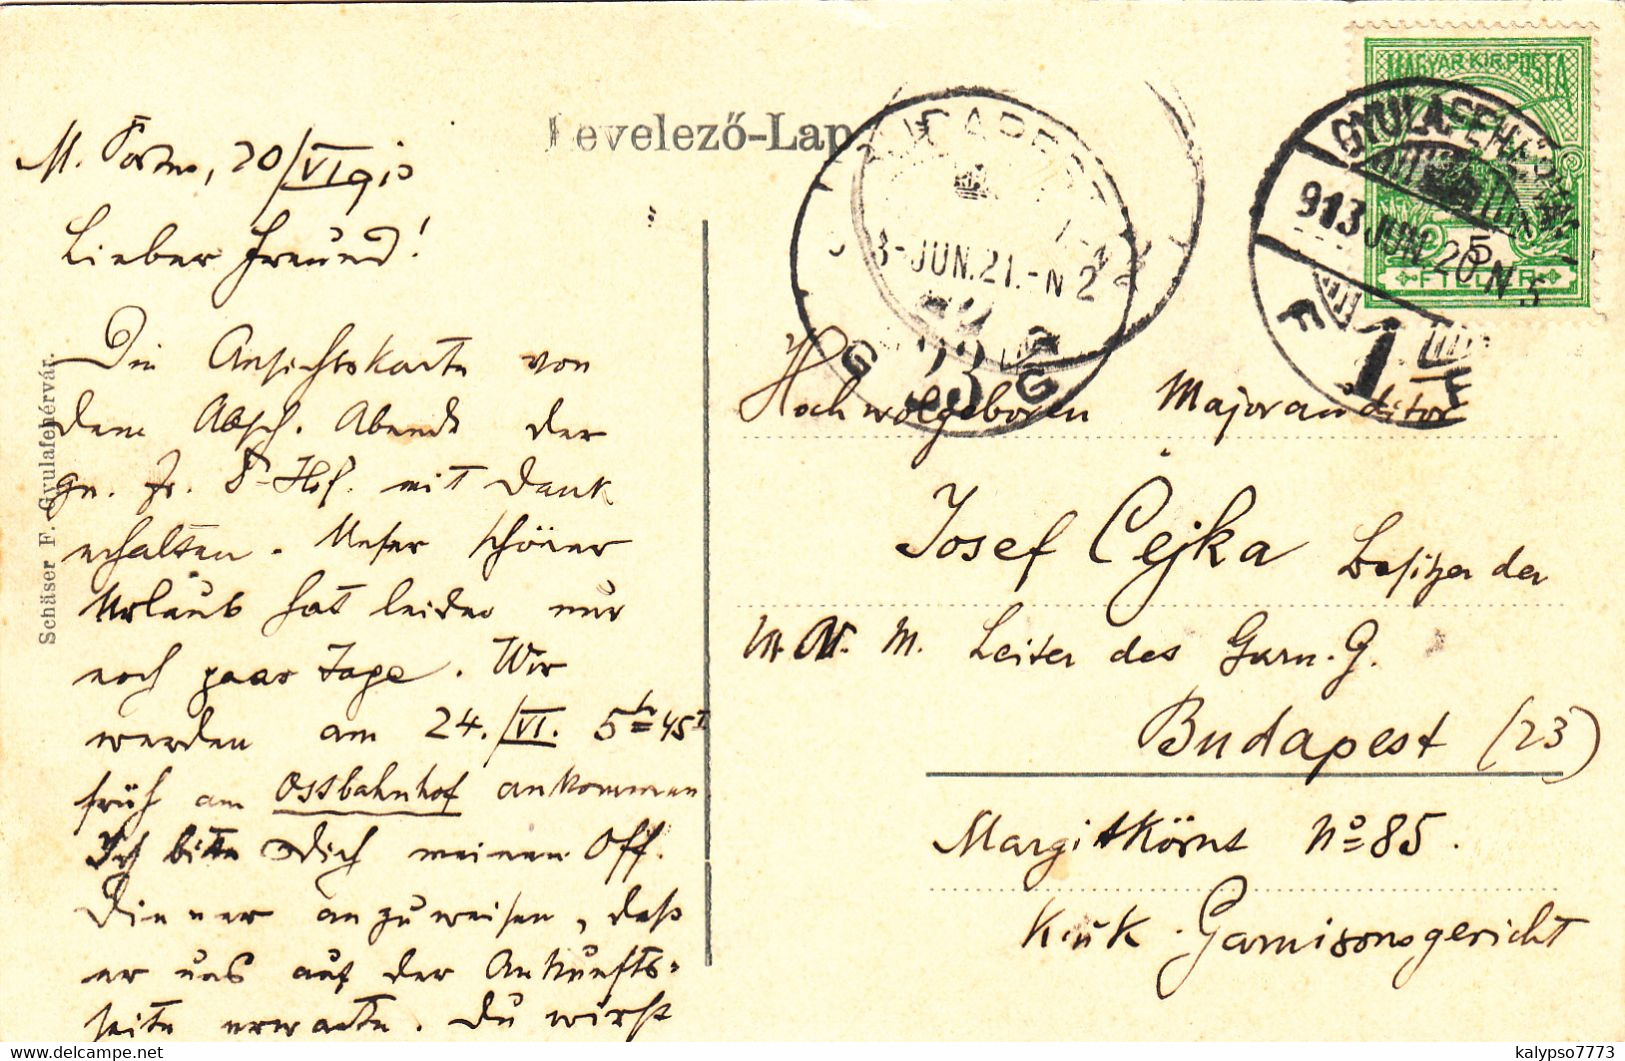 Levelező-Lap
M. 20/VI 913
Lieber Freund!
Die Ansichtskarte von
dem Absch. Abende der
gn. Fr. F-Hof. mit Dank
erhalten. Unser schöner
Urlaub hat leider nur
noch paar Tage. Wir
werden am 24./VI. 5h 45I
früh am Ostbahnhof ankommen
Ich bitte Dich meinen Off.
Diener anzuweisen, daß
er uns auf der Ankunfts-
seite erwarte. Du wirst
Schäser F. Gyulafehérvár.
MAGYAR KIR. POSTA
5
FILLÉR
GYULAFEHÉRVÁR
913 JUN 20 N 5
1
BUDAPEST
3-JUN.21.-N 2
23
Hochwolgeboren Majorauditor
Josef Cejka Besitzer der
M. Leiter des Garn. G.
Budapest (23)
Margitkörut No 85.
K. u K. Garnisonsgericht
kalypso7773